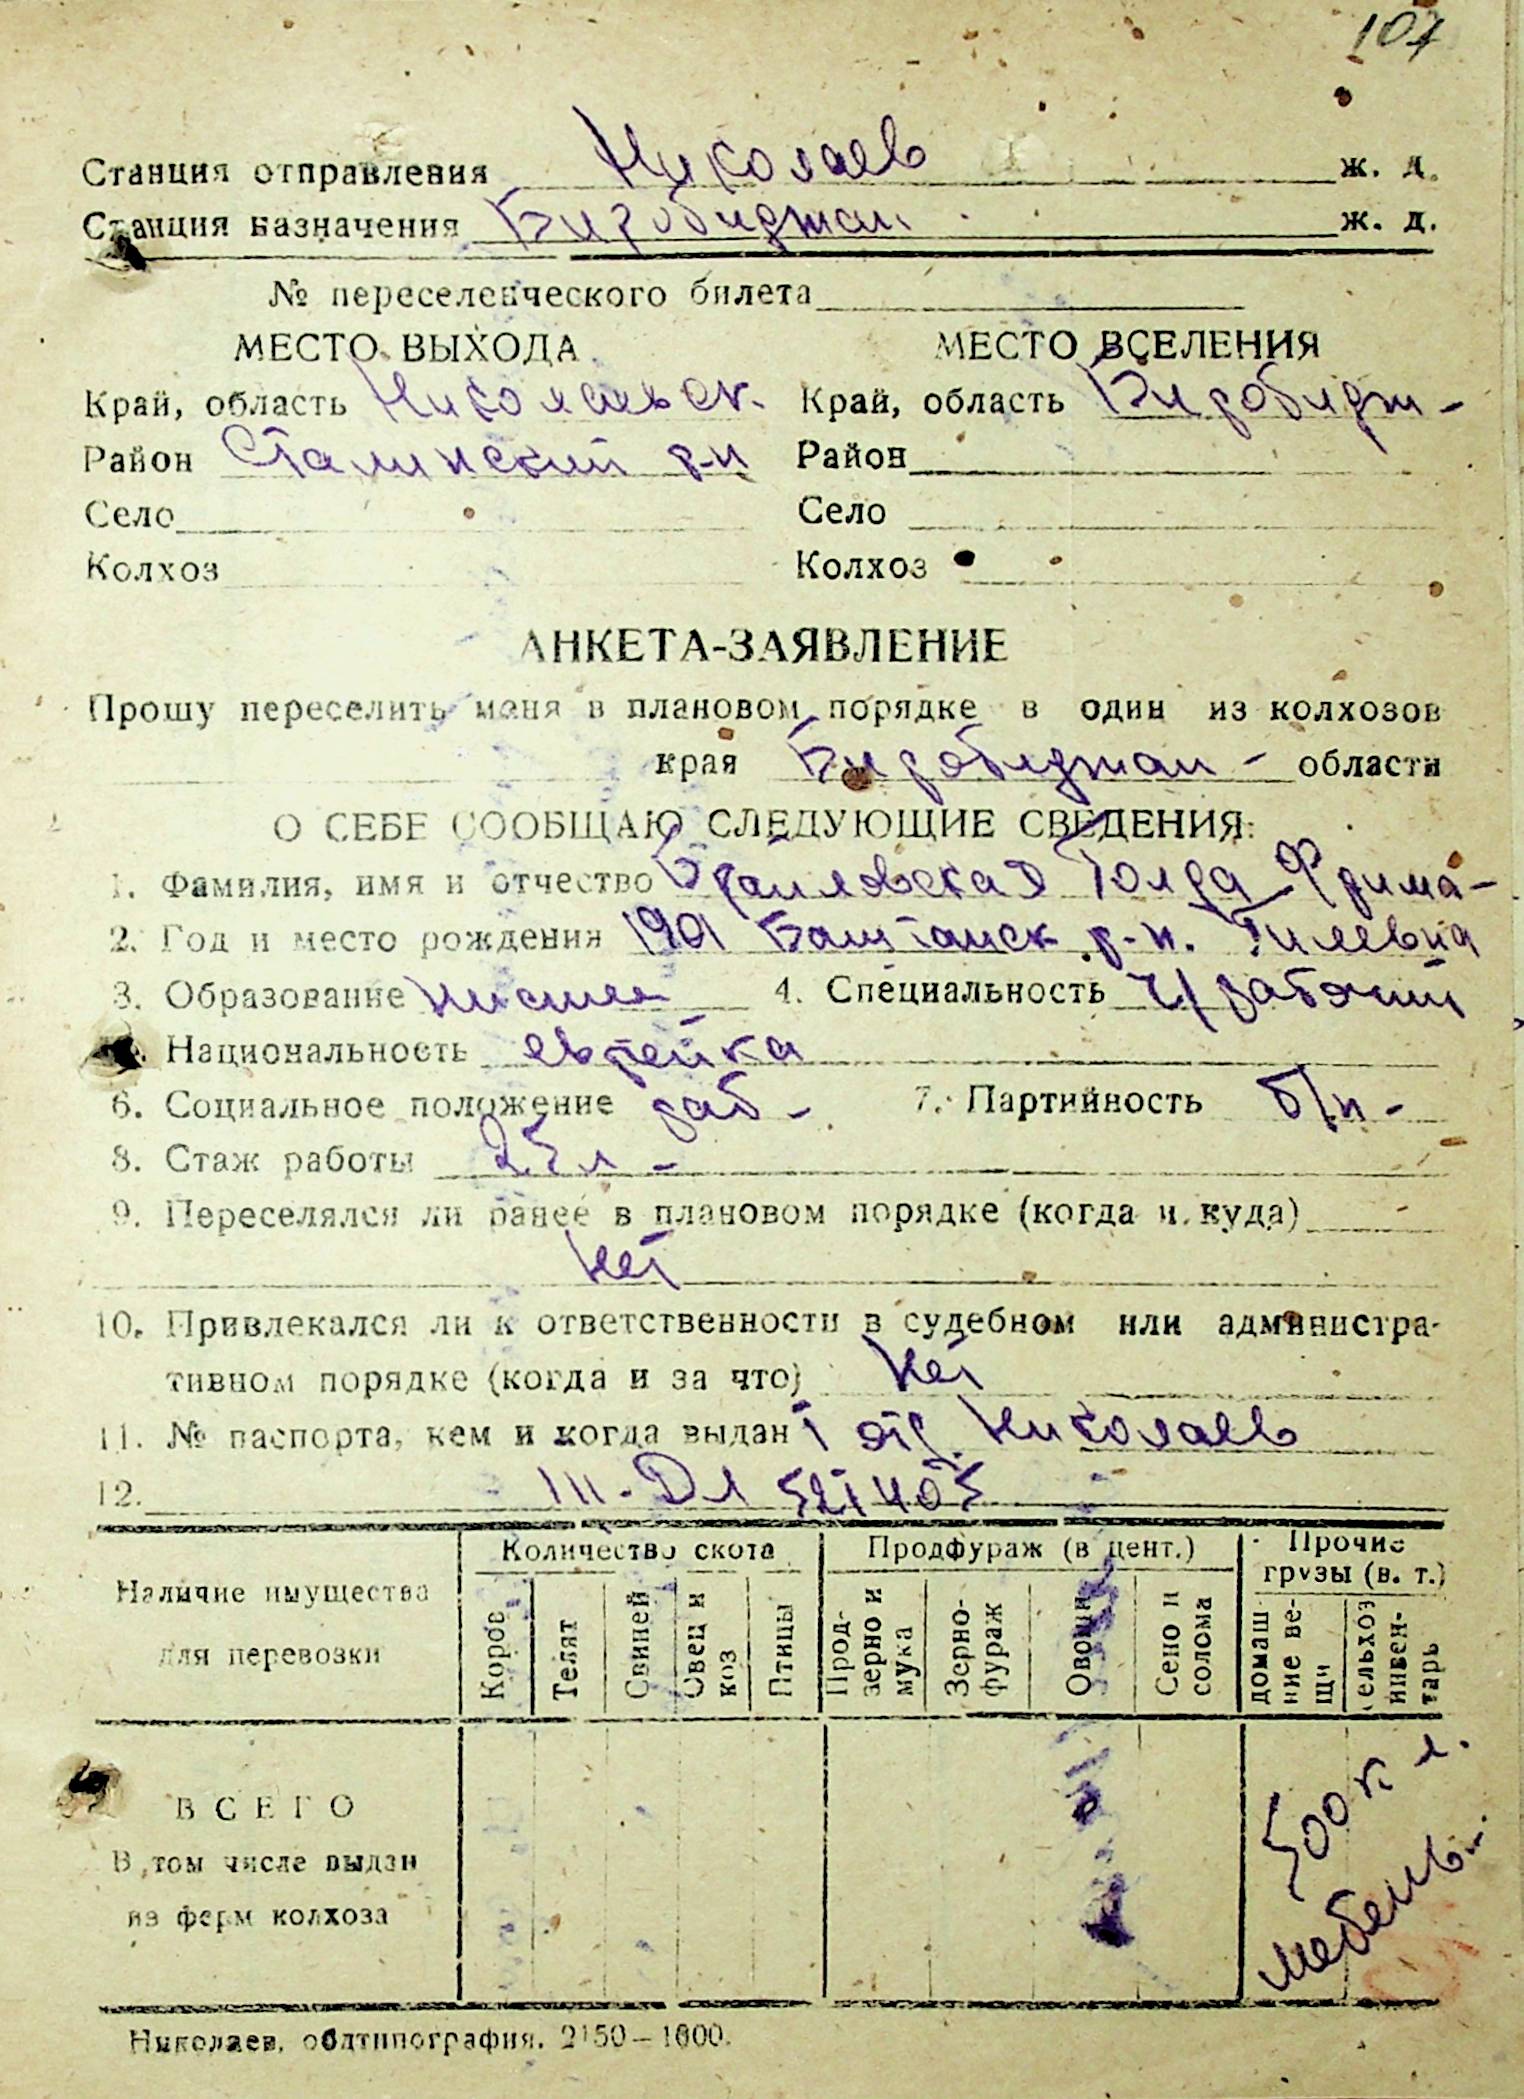 107
Станция отправления Николаев ж. д.
Станция назначения Биробиджан ж. д.
№ переселенческого билета
МЕСТО ВЫХОДА
Край, область Николаевск.
Район Сталинский р-н
Село
Колхоз
МЕСТО ВСЕЛЕНИЯ
Край, область Биробидж-
Район
Село
Колхоз
АНКЕТА-ЗАЯВЛЕНИЕ
Прошу переселить меня в плановом порядке в один из колхозов
края Биробиджан- области
О СЕБЕ СООБЩАЮ СЛЕДУЮЩИЕ СВЕДЕНИЯ:
1. Фамилия, имя и отчество Браиловская Голда Фрима-
2. Год и место рождения 1901 Баштанск р-н.
3. Образование низшее 4. Специальность ч/рабочий
Национальность еврейка
6. Социальное положение раб- 7. Партийность б/п-
8. Стаж работы 25 л-
9. Переселялся ли ранее в плановом порядке (когда и куда)
Нет
10. Привлекался ли к ответственности в судебном или администра-
тивном порядке (когда и за что) Нет
11. № паспорта, кем и когда выдан 1 отд. Николаев
12. III-ДЛ 521405
Наличие имущества для перевозки
Количество скота
Продфураж (в цент.)
Прочие грузы (в. т.)
Коров
Телят
Свиней
Овец и коз
Птицы
Прод-зерно и мука
Зерно-фураж
Овощи
Сено и солома
домаш ние ве-щи
сельхоз инвен-тарь
ВСЕГО
В том числе выдан
из ферм колхоза
500 кг.
мебель.
Николаев, облтипография. 2150—1000.